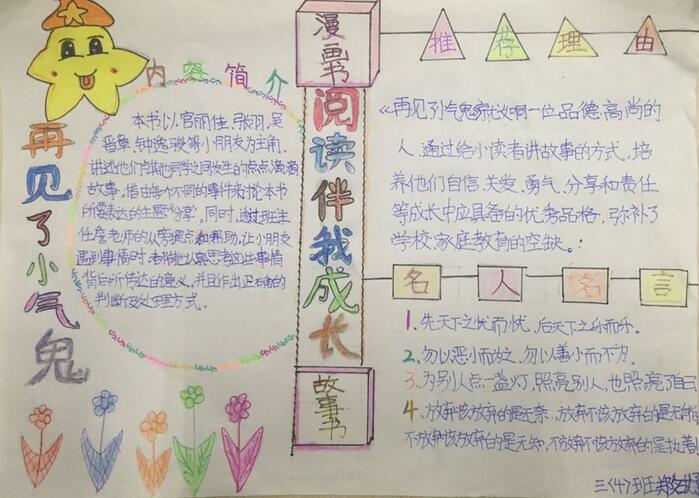 再见了小气鬼
内容简介
本书以官丽佳、张羽、吴
晋章、钟逸骏等小朋友为主角,
讲述他们与其他同学之间发生的点点滴滴
故事,借由每个不同的事件来讨论本书
所要表达的主题“分享”,同时,透过班主
任詹老师的从旁提点和帮助,让小朋友
遇到事情时
思考这些事情
背后所传达的意义,并且作出正确的
判断及处理方式。
漫画书
阅读伴我成长
故事书
推荐理由
《再见了小气鬼
一位品德高尚的
人,通过给小读者讲故事的方式,培
养他们自信、关爱、勇气、分享和责任
等成长中应具备的优秀品格,弥补了
学校、家庭教育的空缺。
名人名言
1.先天下之忧而忧,后天下之乐而乐。
2.勿以恶小而为之,勿以善小而不为。
3.为别人点一盏灯,照亮别人,也照亮了自己
4.放弃该放弃的是无奈,放弃不该放弃的是无能
不放弃该放弃的是无知,不放弃不该放弃的是执著
三(4)班